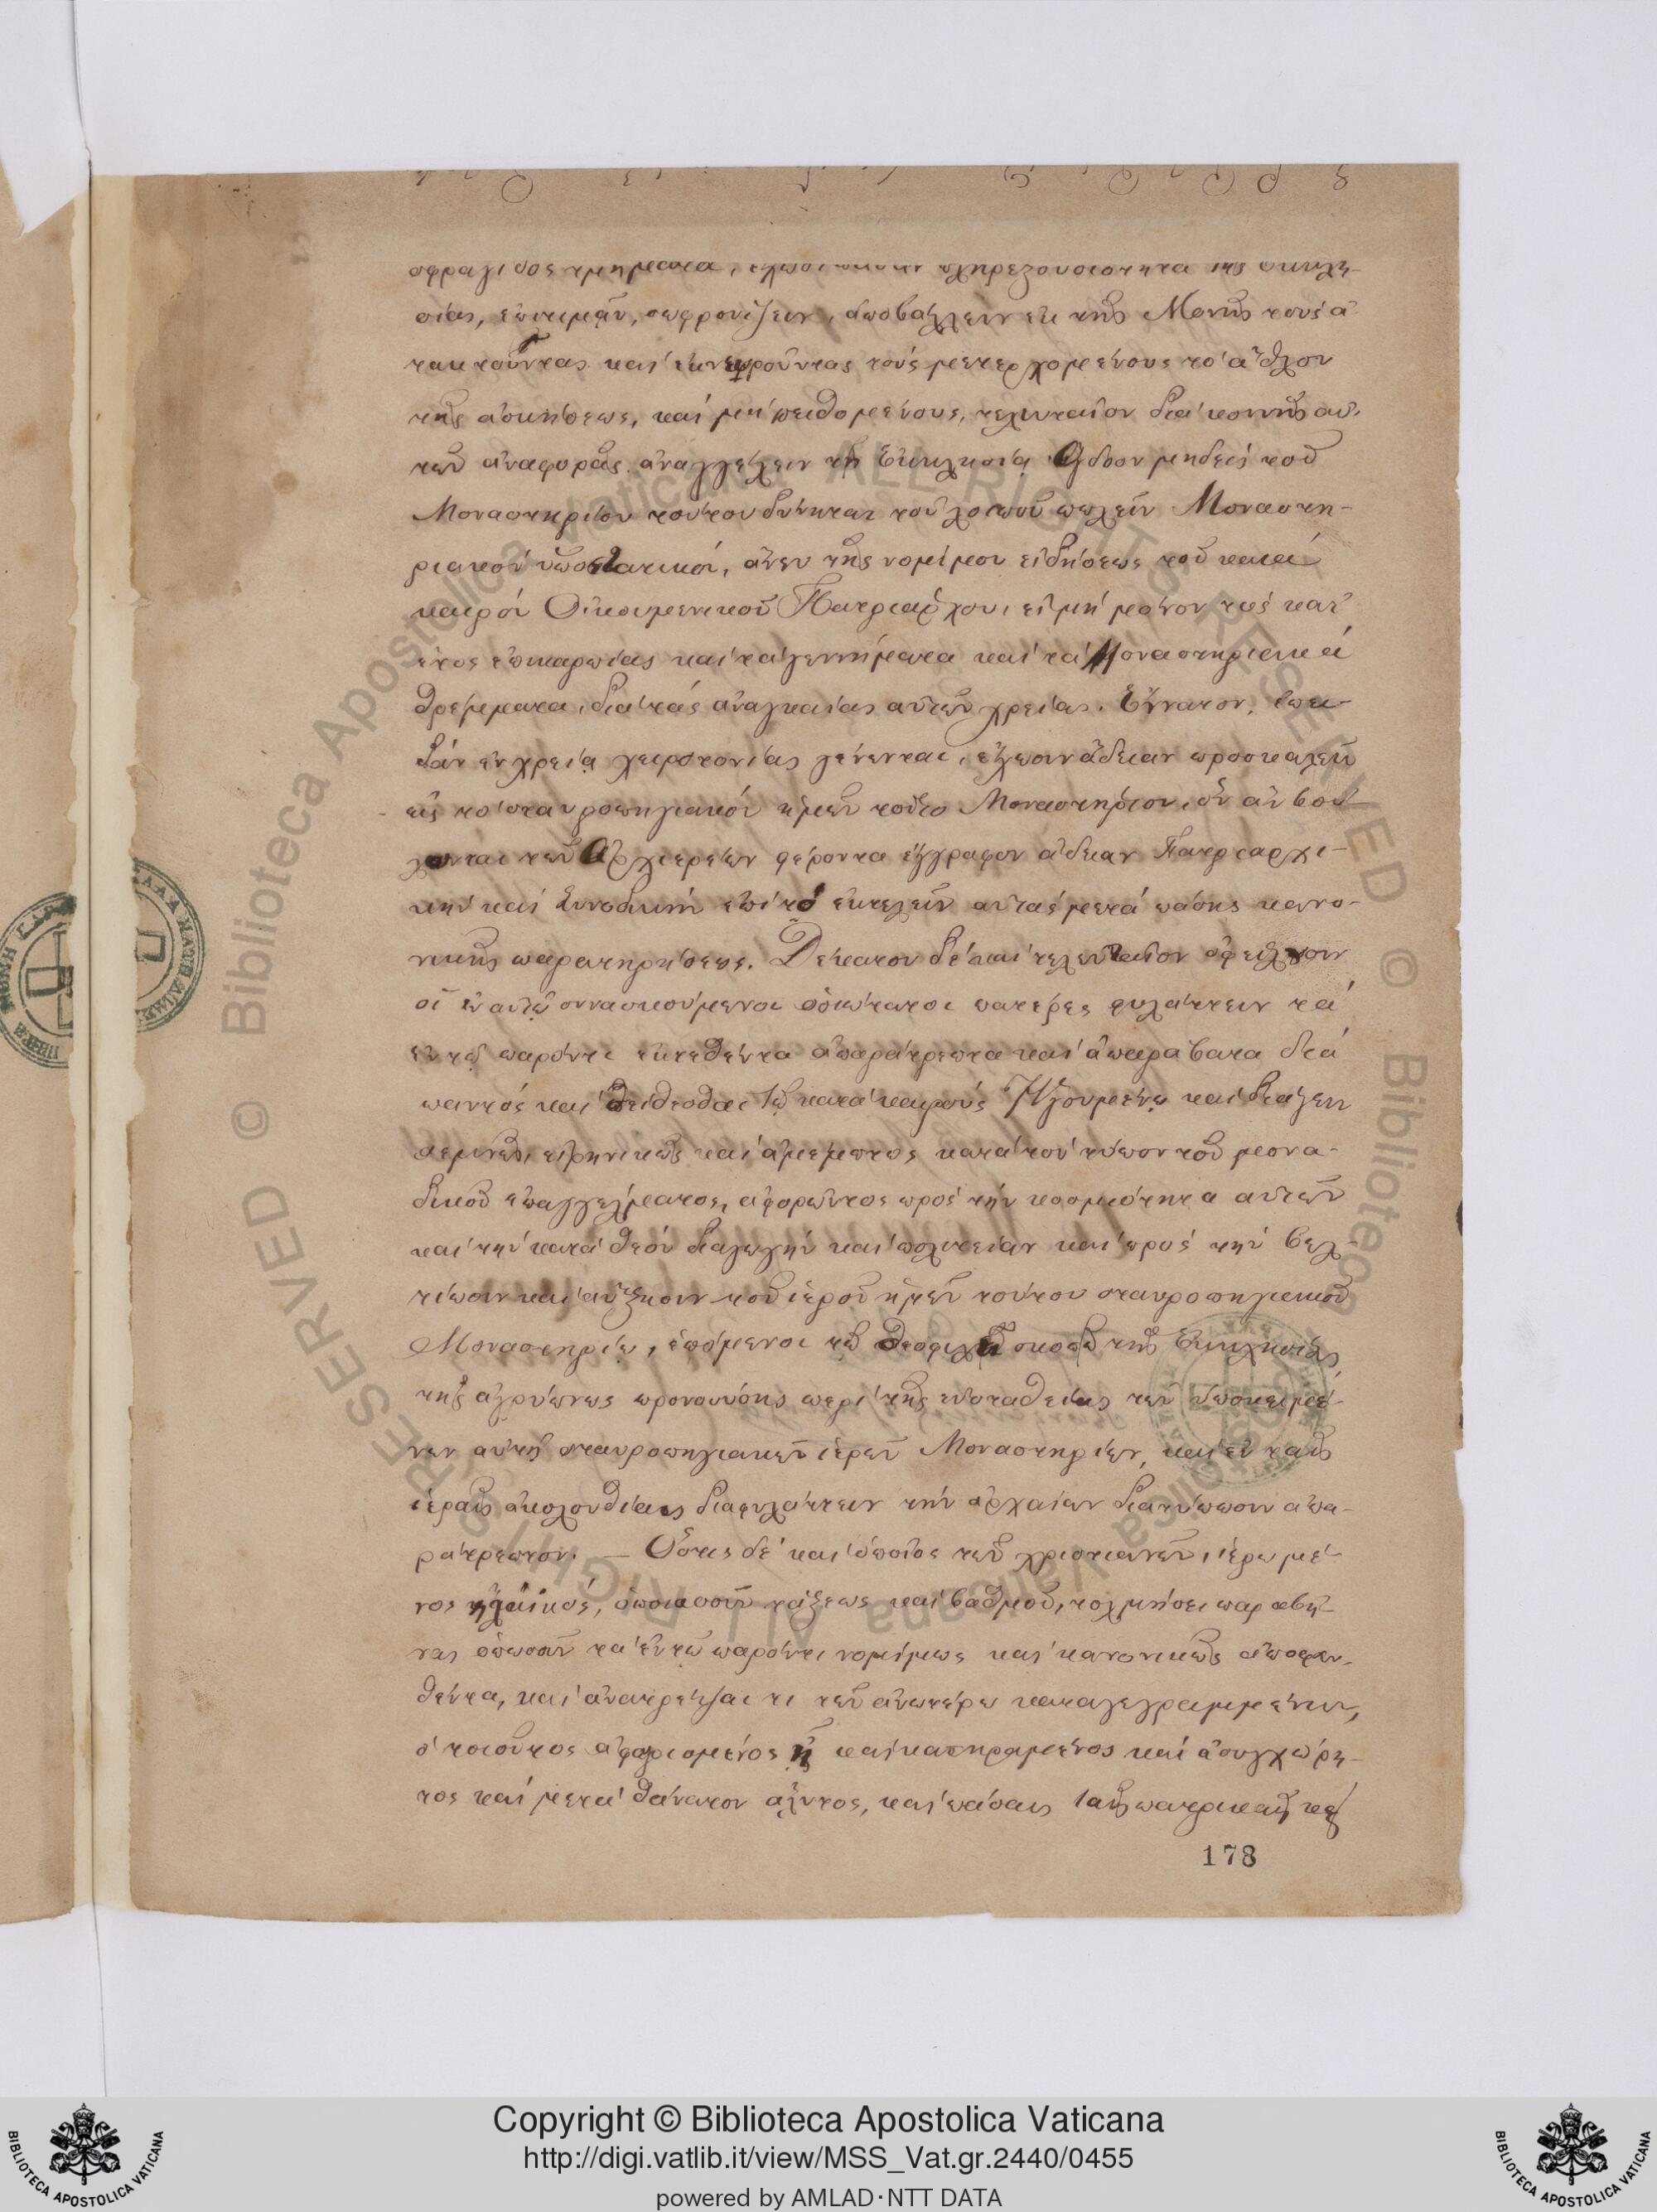 σφραγίδος τμήματα, πληρεξουσιότητα της Εκκλη-
σίας, επιτιμᾶν, σωφρονίζειν, αποβάλλειν εκ της Μονῆς τους ἀ
τακτοῦντας και τους μετερχομένους το ἆθλον
της ασκήσεως, και μη πειθομένους, τελευταῖον δια κοινῆς αυ.
των ἀναφορᾶς ἀναγγέλειν τῇ Εκκλησίᾳ. Ογδοον μηδείς τοῦ
Μοναστηρίου τούτου δύνηται τοῦ λοιποῦ πωλεῖν Μοναστη-
ριακόν υποστατικόν, ἄνευ της νομίμου εἰδήσεως τοῦ κατά
καιρόν Οἰκουμενικοῦ Πατριάρχου, εἰ μή μόνον τας κατ'
έτος επικαρπίας και τα γεννήματα και τα Μοναστηριακά
θρέμματα, δια τάς αναγκαίας αυτῶν χρείας. Ἔννατον, επει-
δάν εν χρείᾳ χειροτονίας γένωνται, έχωσιν άδειαν προσκαλεῖν
εις το σταυροπηγιακόν ημῶν τοῦτο Μοναστήριον, ὃν ἂν βού-
λωνται τῶν Αρχιερέων φέροντα έγγραφον ἄδειαν Πατριαρχι-
κην και Συνοδικήν επί τό εκτελεῖν αυτάς μετά πάσης κανο-
νικῆς παρατηρήσεως. Δέκατον δέ και τελευταῖον οφείλωσιν
οἱ ἐν αυτῷ συνασκούμενοι οσιώτατοι πατέρες φυλάττειν τα
εν τῷ παρόντι εκτεθέντα απαράτρεπτα και απαράβατα διά
παντός και πείθεσθαι τῷ κατά καιρούς Ηγουμένῳ και διάγειν
σεμνῶς, ειρηνικῶς και αμέμπτως κατά τον τύπον τοῦ μονα-
δικοῦ επαγγέλματος, αφορῶντος προς τήν κοσμιότητα αυτῶν
και την κατά θεόν διαγωγήν και πολιτείαν και προς την βελ-
τίωσιν και αύξησιν τοῦ ιεροῦ ημῶν τούτου σταυροπηγιακοῦ
Μοναστηρίου, επόμενοι τῷ θεοφιλεῖ σκοπῷ της Εκκλησίας
της αγρύπνως προνοούσης περί της ευσταθείας των υποκειμέ-
νων αυτῇ σταυροπηγιακῶν ιερῶν Μοναστηρίων, και εν ταῖς
ιεραῖς ακολουθίαις διαφυλάττειν την αρχαίαν διατύπωσιν απα-
ράτρεπτον. — Ὅστις δέ και οποῖος τῶν χριστιανῶν, ιερωμέ-
νος ἢ λαϊκός, οποιασοῦν τάξεως και βαθμοῦ, τολμήσει παραβῆ-
ναι οπωσοῦν τα εν τῷ παρόντι νομίμως και κανονικῶς αποφαν-
θέντα, και ανατρέψαι τι τῶν ανωτέρω καταγεγραμμένων,
ο τοιοῦτος αφωρισμένος ᾖ και κατηραμένος και ασυγχώρη-
τος και μετά θάνατον άλυτος, και πάσαις ταῖς πατρικαῖς και
178
Copyright © Biblioteca Apostolica Vaticana
http://digi.vatlib.it/view/MSS_Vat.gr.2440/0455
powered by AMLAD·NTT DATA